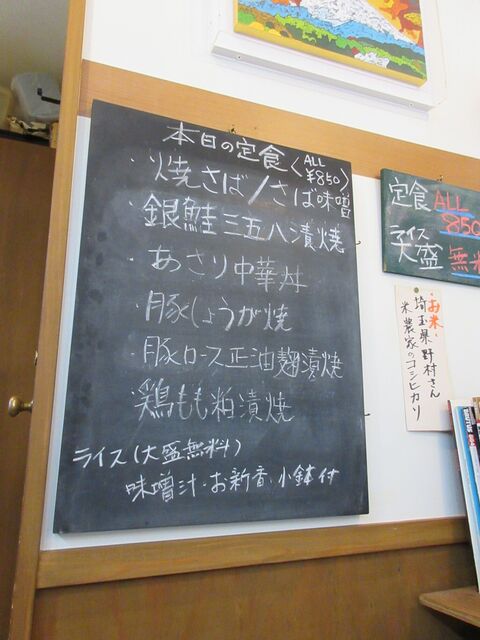 本日の定食〈ALL ¥850〉
・焼さば/さば味噌
・銀鮭三五八漬焼
・あさり中華丼
・豚しょうが焼
・豚ロース正油麹漬焼
・鶏もも粕漬焼
ライス(大盛無料)
味噌汁・お新香・小鉢付
定食ALL
850
ライス
大盛 無料
・お米・
埼玉県 野村さん
米農家のコシヒカリ